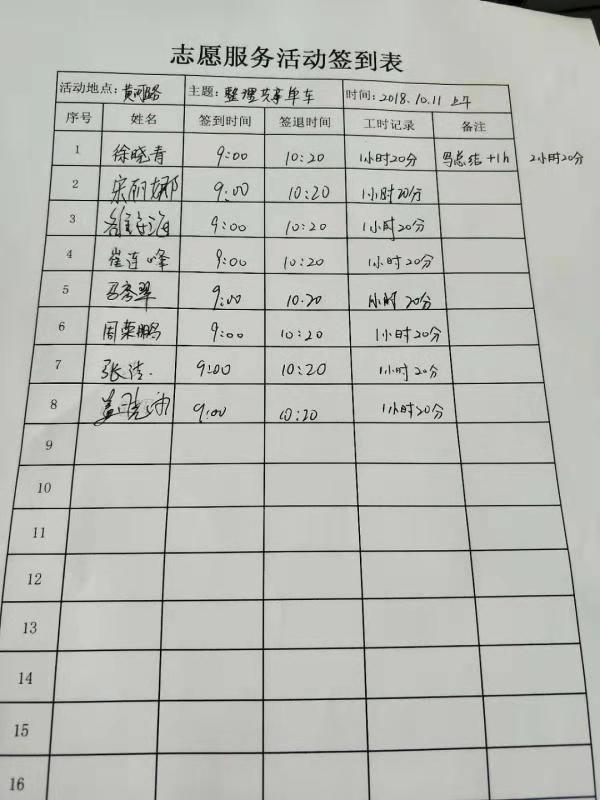 志愿服务活动签到表
活动地点：黄河路 主题：整理共享单车 时间：2018.10.11 上午
序号 姓名 签到时间 签退时间 工时记录 备注
1 徐晓青 9:00 10:20 1小时20分 写总结+1h 2小时20分
2 宋丽娜 9:00 10:20 1小时20分
3 9:00 10:20 1小时20分
4 崔连峰 9:00 10:20 1小时20分
5 马秀翠 9:00 10.20 1小时20分
6 周荣鹏 9:00 10:20 1小时20分
7 张洁. 9:00 10:20 1小时20分
8 9:00 10:20 1小时20分
9
10
11
12
13
14
15
16